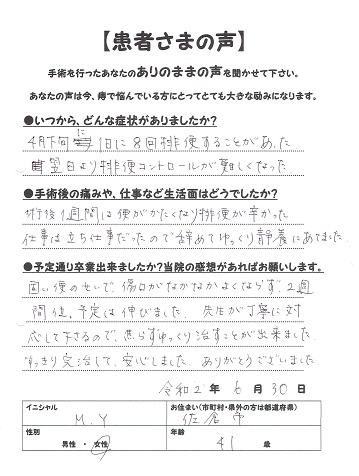 【患者さまの声】
手術を行ったあなたのありのままの声を聞かせて下さい。
あなたの声は今、痔で悩んでいる方にとってとても大きな励みになります。
●いつから、どんな症状がありましたか?
4月下旬に1日に8回排便することがあった
翌日より排便コントロールが難しくなった
●手術後の痛みや、仕事など生活面はどうでしたか?
術后1週間は便がかたくなり排便が辛かった
仕事は立ち仕事だったので辞めてゆっくり静養にあてました
●予定通り卒業出来ましたか?当院の感想があればお願いします。
固い便のせいで、傷口がなかなかよくならず、2週
間位、予定は伸びました。先生が丁寧に対
応して下さるので、焦らずゆっくり治すことが出来ました。
すっきり完治して、安心しました。ありがとうございました
令和2年 6月 30日
イニシャル お住まい(市町村・県外の方は都道府県)
M.Y 佐倉市
性別 年齢
男性 ・ 女性 41 歳